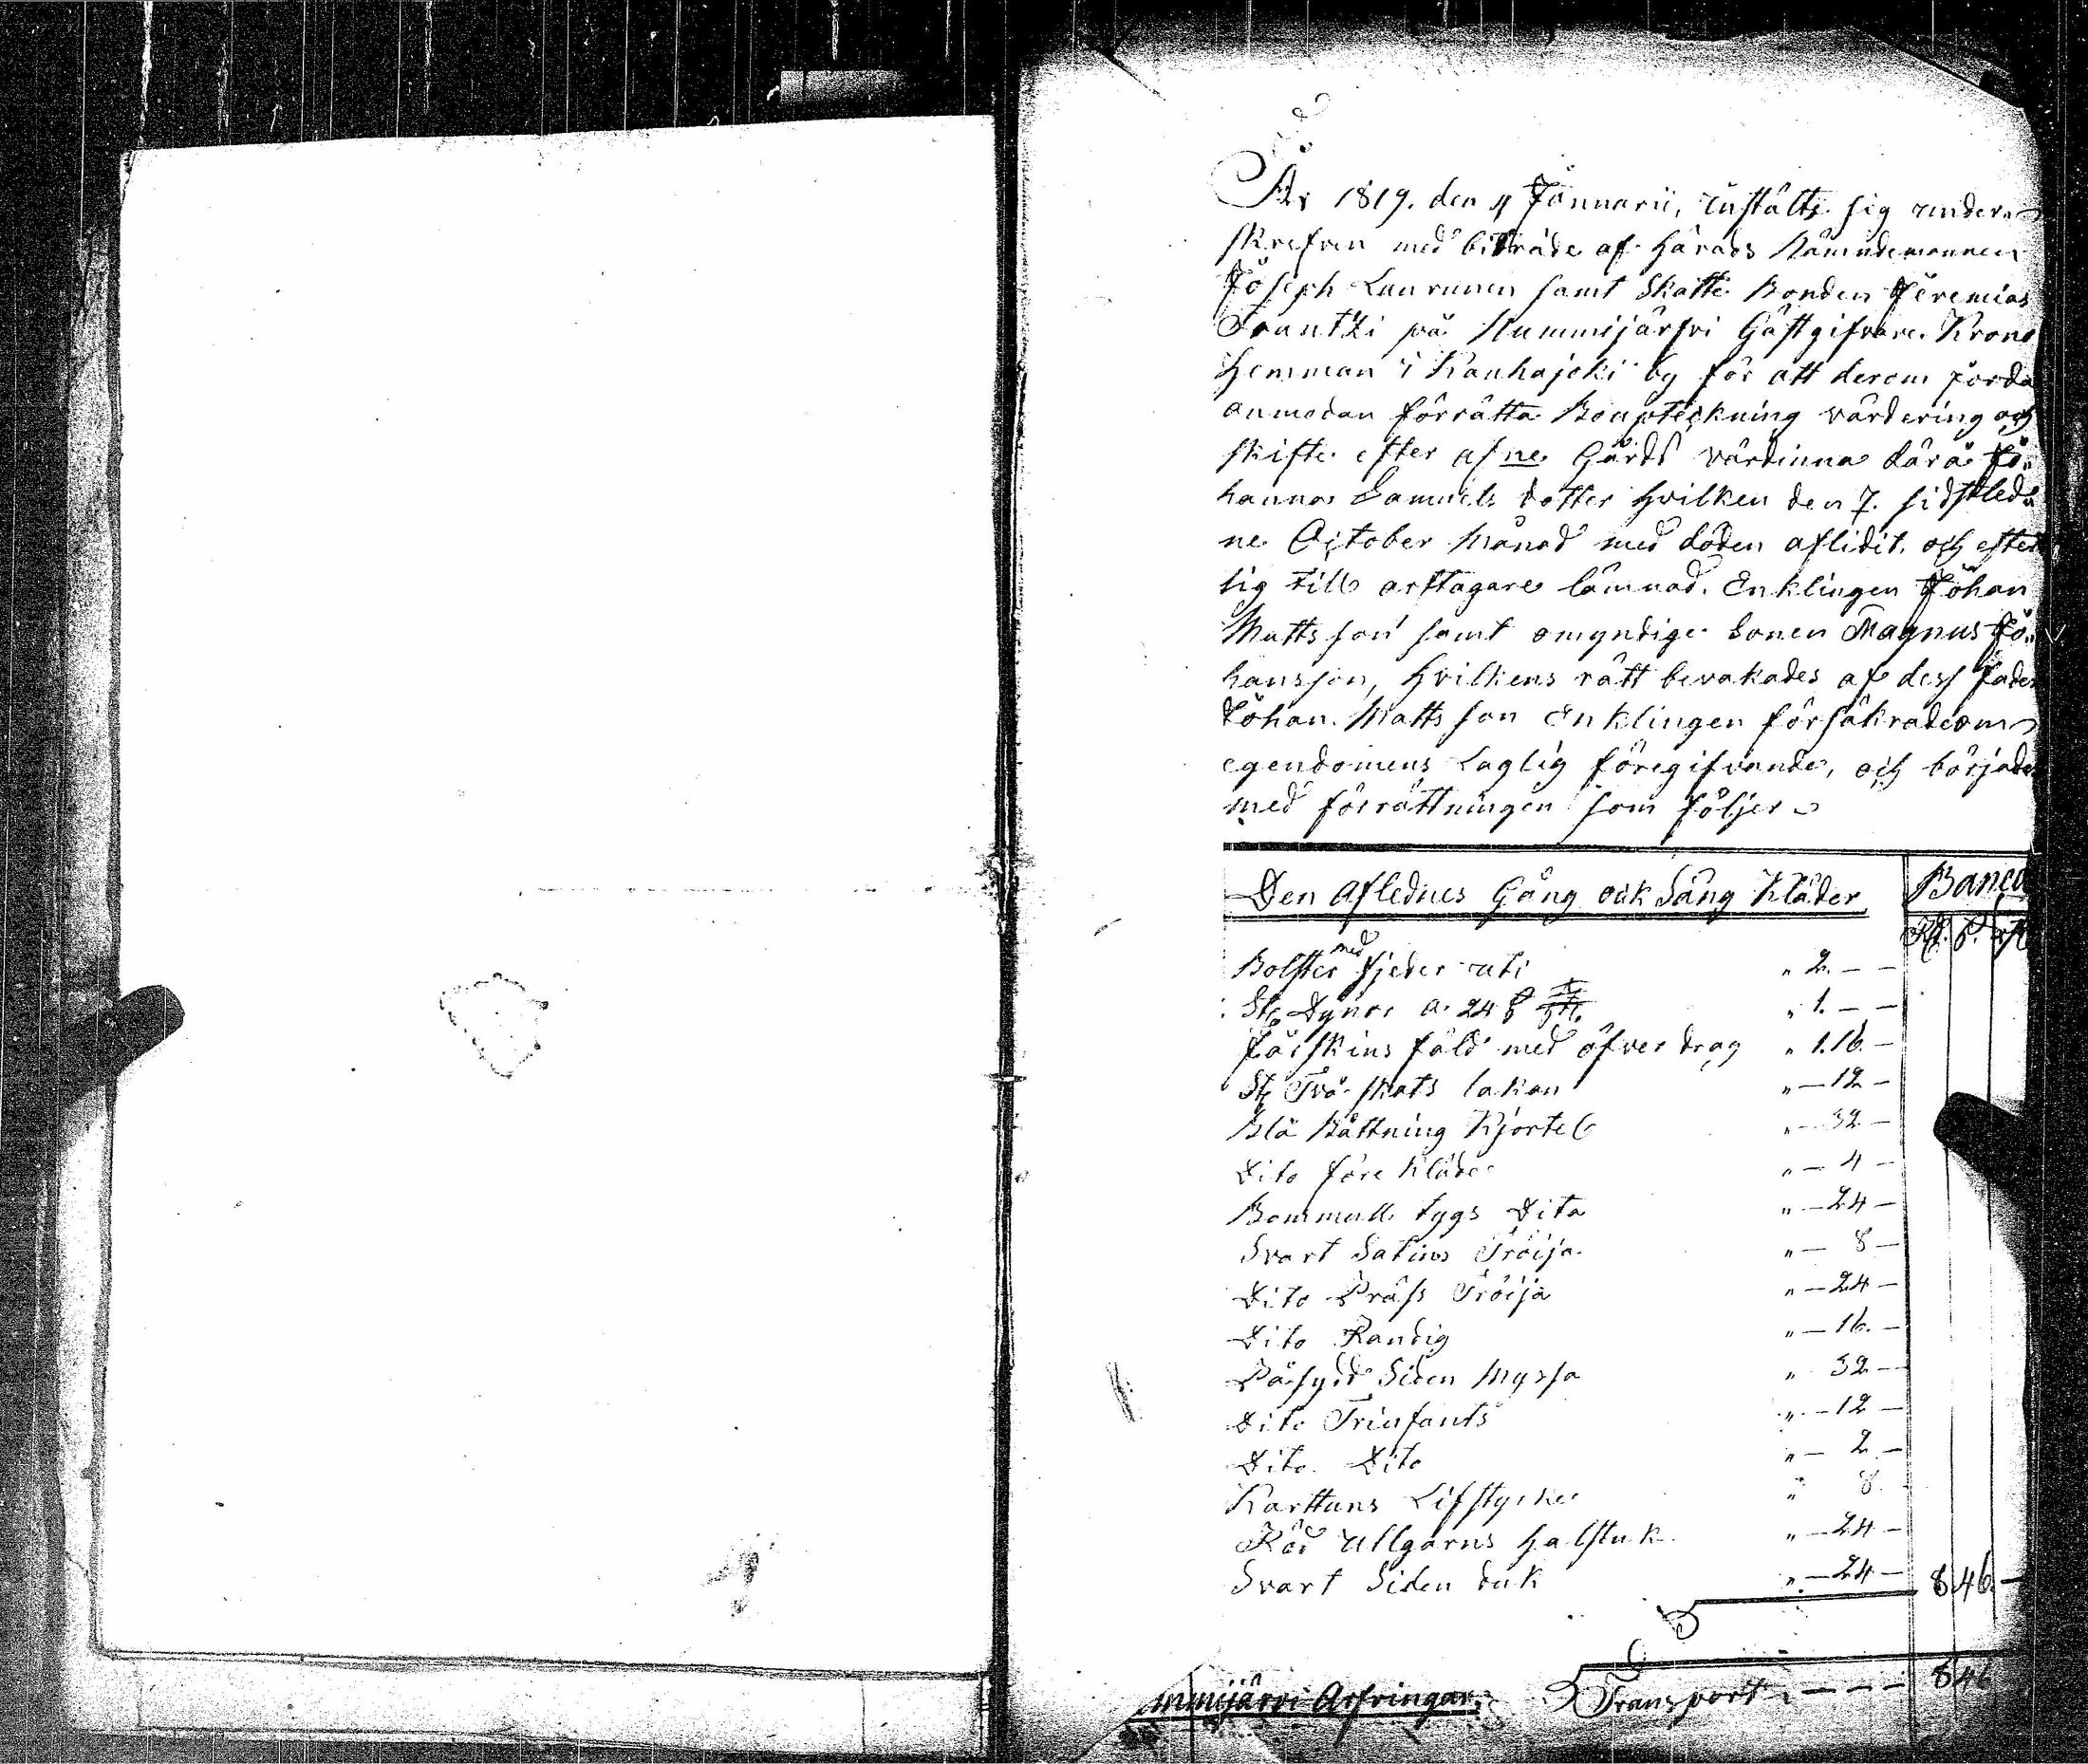 År 1819. den 4 Januarii, instälts sig under-
skrefven med biträde af Härads Nämndemannen
Joseph Luurunen samt Skatte Bonden Jeremias
Frantzi på Nummijärfvi Gästgifvare Krono
Hemman i Kauhajoki by för att derom gorda
anmodan förrätta Bouptekning värdering och
skifte efter afne Gårds värdinna därå Jo-
hanna Samuels dotter hvilken den 7. sidstled-
ne October Månad med döden aflidit. och efter
sig till arftagare lämnad. Enklingen Johan
Mattsson samt omyndige Sonen Magnus Jo-
hansson, Hvilkens rätt bevakades af dess fader
Johan Mattsson Enklingen försäkrade om
egendomens Laglig föregifvande, och börjades
med förrättningen som följer
Den Aflednes Gång ock Säng Kläder Banco
Rd. ß. rst
Bolster med fjeder uti " 2. — —
St. Dynor a. 24 ß " 1. — —
Fårskins fäld med öfver drag " 1.16. —
St. Två skats lakan " — 12 —
Blå Råttning Kjortel " — 32 —
Dito före Kläde " — 4 —
Bommull. tygs Dito " — 24 —
Svart Satins Tröija " — 8 —
Dito Präss Tröija " — 24 —
Dito Randig " — 16. —
Påsydd Siden Myssa " 32 —
Dito Triufants " — 12 —
Dito Dito " — 2 —
Karttuns Lifstycke " 8.
Röd ullgarns halsduk " — 24 —
Svart Siden duk " — 24 — 8 46. —
mmijärvi Arfvingar. Transport — — — 8 46